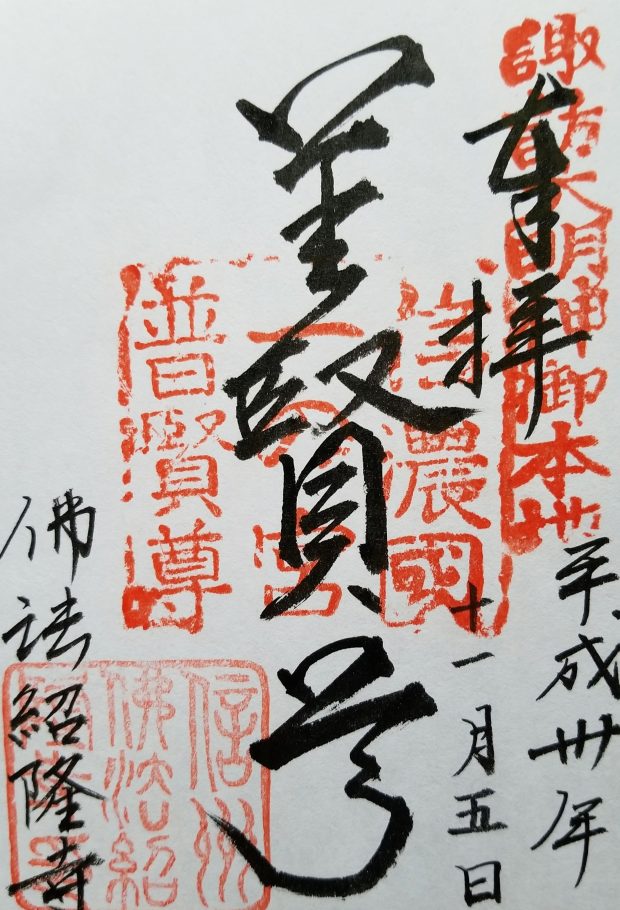 諏訪大明神御本地
奉拝
平成卅年
十一月五日
信濃國
一之宮
普賢尊
普賢尊
佛法紹隆寺
信州
佛法紹
隆寺